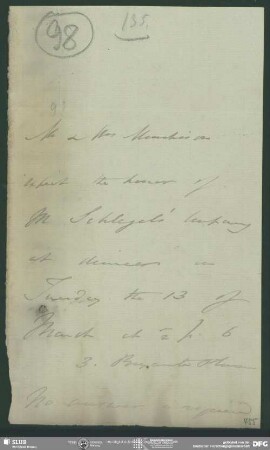 98
135.
Mr & Mrs Murchison
request the honor of
M Schlegel's company
at dinner on
Tuesday the 13 of
March at ½ p 6
3. Bryanston Place
No answer is required
SLUB
DFG